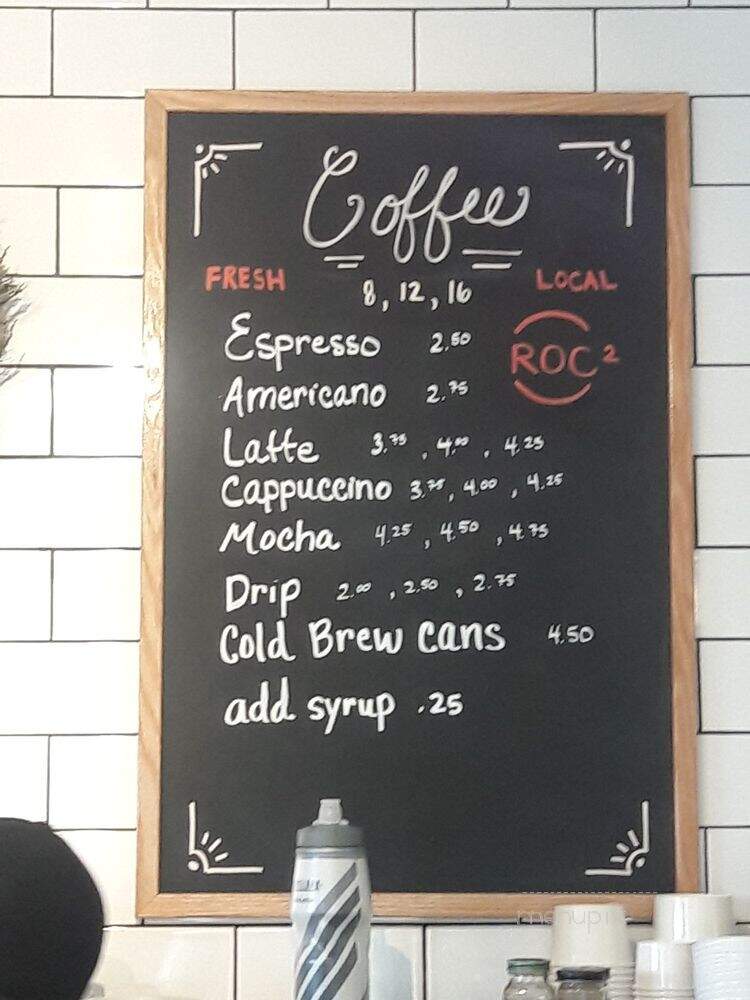 Coffee
FRESH
8, 12, 16
LOCAL
Espresso 2.50
ROC²
Americano 2.75
Latte 3.75, 4.00, 4.25
Cappuccino 3.75, 4.00, 4.25
Mocha 4.25, 4.50, 4.75
Drip 2.00, 2.50, 2.75
Cold Brew cans 4.50
add syrup .25